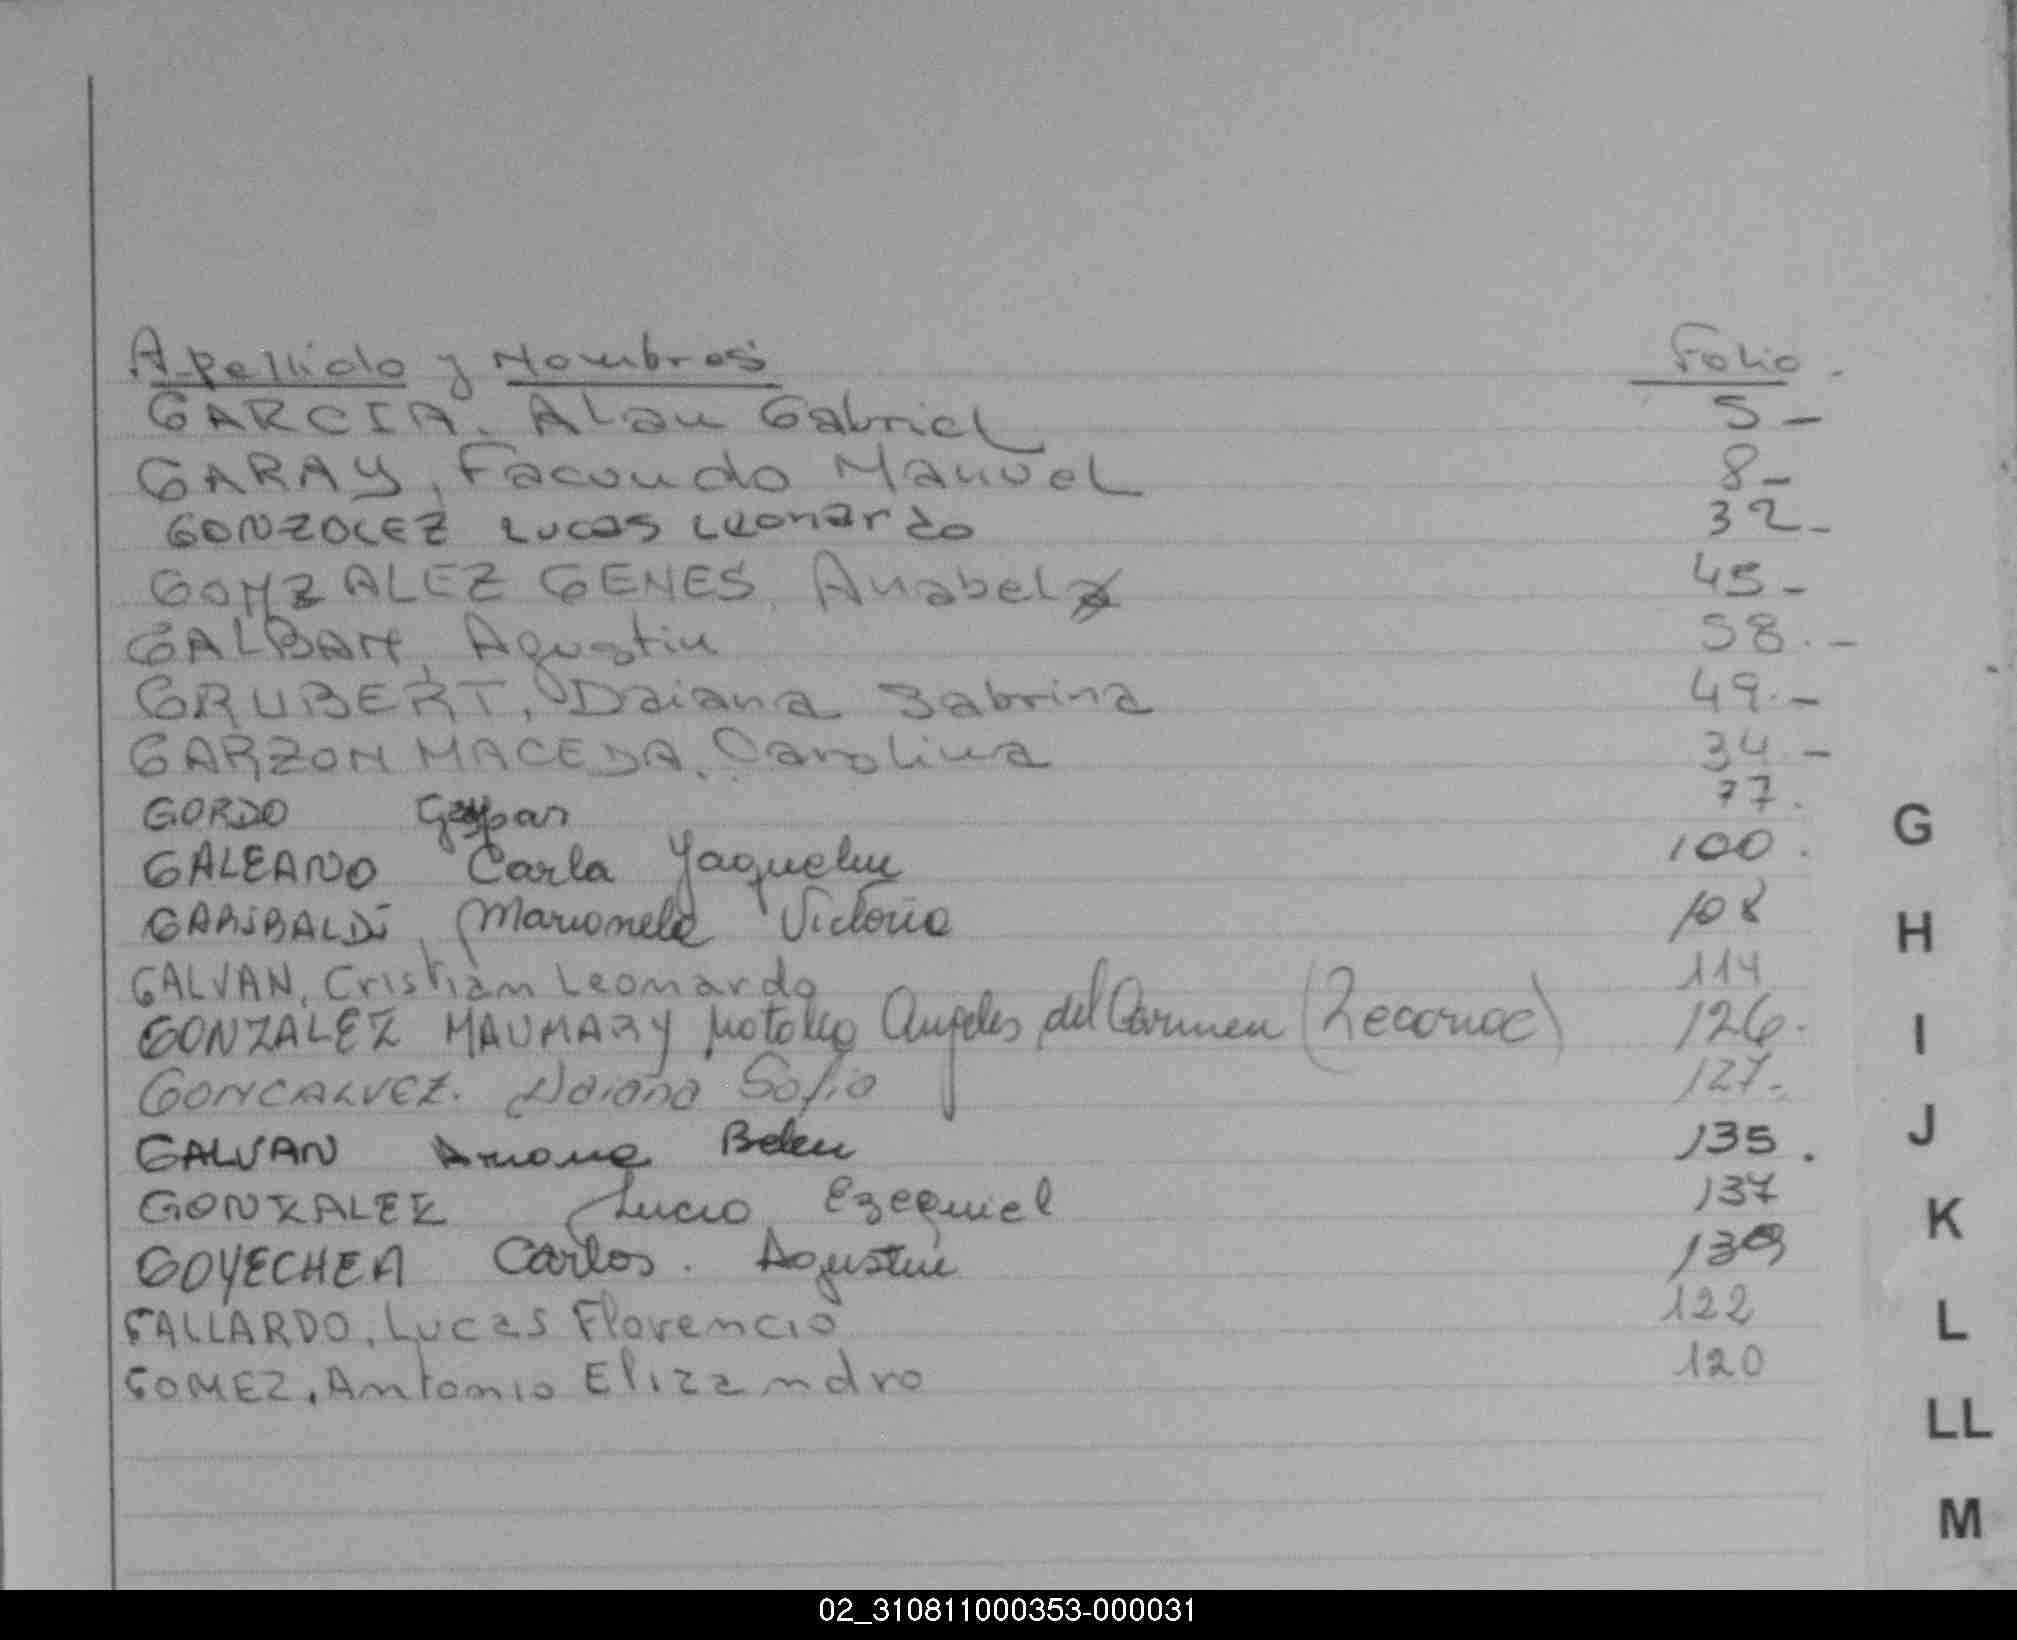 Apellido y Nombres Folio.
GARCIA. Alan Gabriel 5-
GARAY, Facundo Manuel 8-
GONZOLEZ Lucas Leonardo 32-
GONZALEZ GENES, Anabel 45-
GALBAN, Agustin 58.-
GRUBERT, Daiana Sabrina 49.-
GARZON MACEDA, Carolina 34-
GORDO Gaspar 77.
GALEANO Carla Yaquelin 100.
GARIBALDI, Marianela Victoria 108
GALVAN, Cristian Leonardo 114
GONZALEZ MAUMARY Angeles del Carmen (Reconoc) 126.
GONCALVEZ. Daiana Sofia 127.
GALVAN Belen 135.
GONZALEZ Lucio Ezequiel 137
GOYECHEA Carlos. Agustin 139
GALLARDO, Lucas Florencio 122
GOMEZ, Antonio Elizandro 120
G
H
I
J
K
L
LL
M
02_310811000353-000031